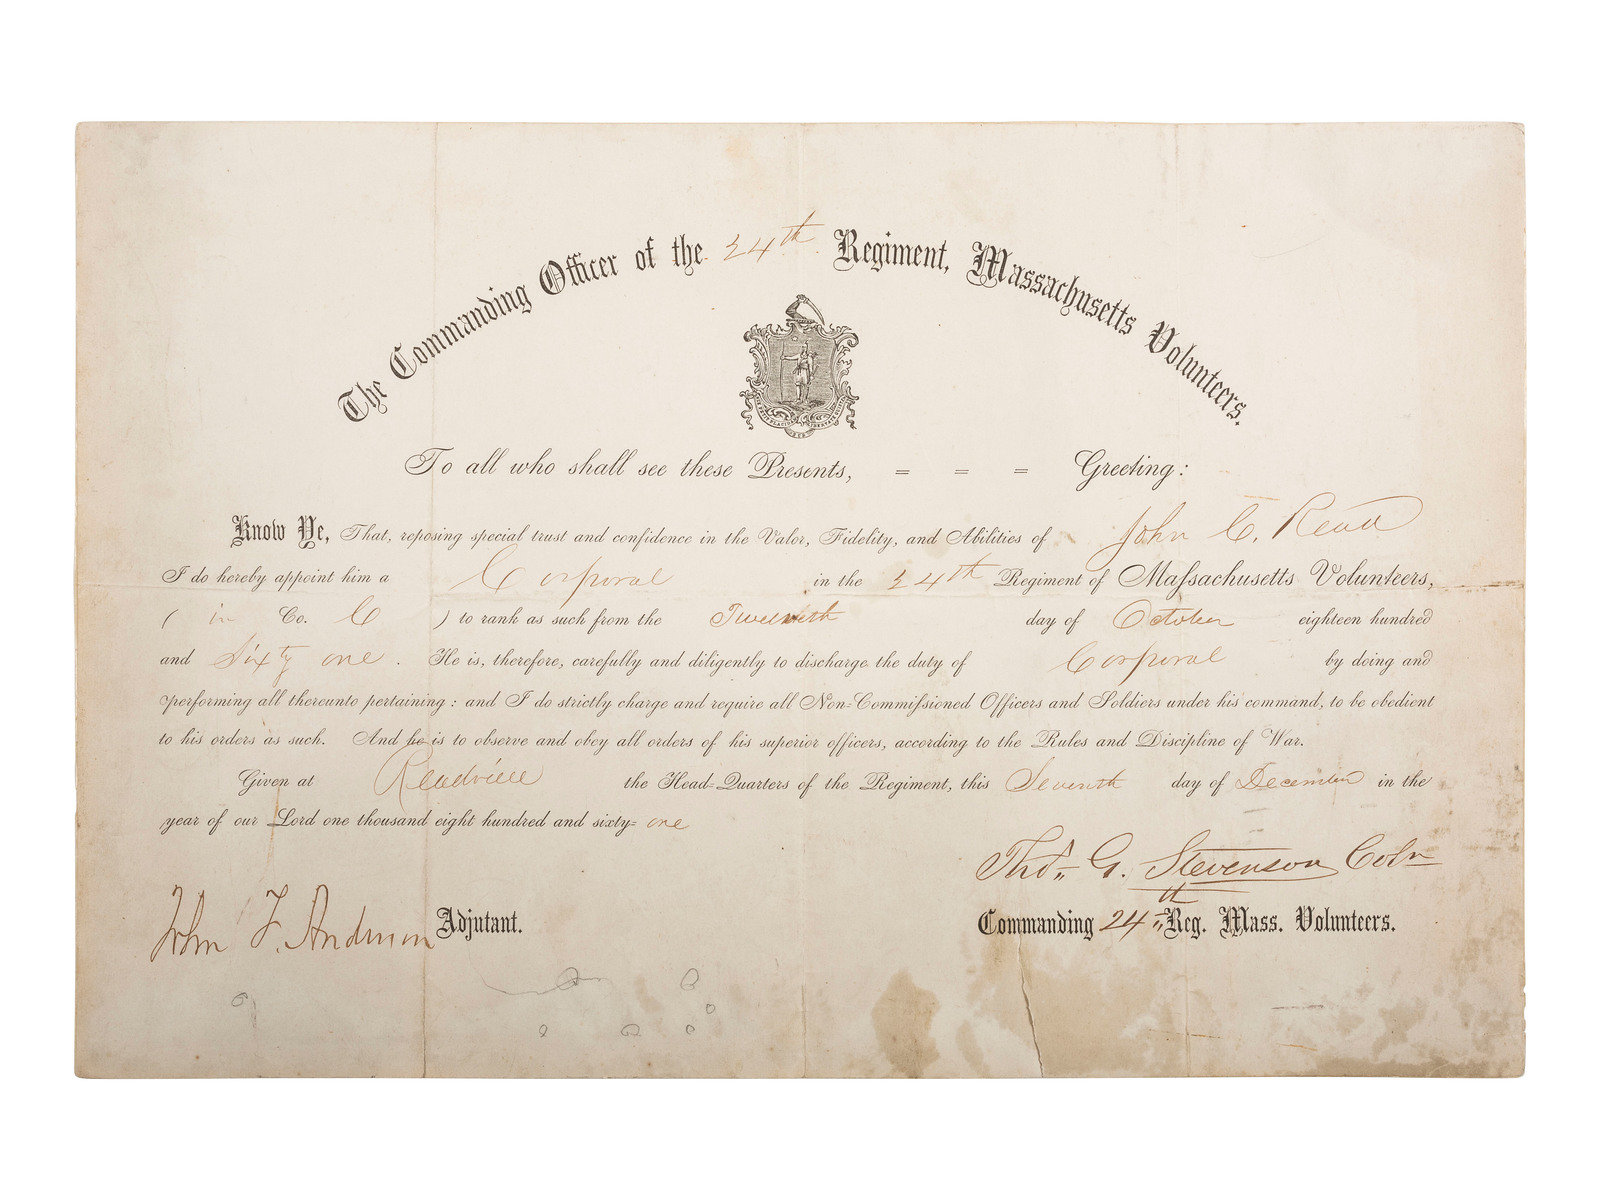 The Commanding Officer of the 24th Regiment, Massachusetts Volunteers.
To all who shall see these Presents, = = = Greeting:
Know Ye, That, reposing special trust and confidence in the Valor, Fidelity, and Abilities of John C. Read
I do hereby appoint him a Corporal in the 24th Regiment of Maſsachusetts Volunteers,
( in Co. C ) to rank as such from the day of October eighteen hundred
and Sixty one. He is, therefore, carefully and diligently to discharge the duty of Corporal by doing and
performing all thereunto pertaining: and I do strictly charge and require all Non-Commiſsioned Officers and Soldiers under his command, to be obedient
to his orders as such. And he is to observe and obey all orders of his superior officers, according to the Rules and Discipline of War.
Given at Readville the Head-Quarters of the Regiment, this Seventh day of December in the
year of our Lord one thousand eight hundred and sixty- one
Thos. G. Stevenson Coln
John F. Anderson Adjutant.
Commanding 24th Reg. Mass. Volunteers.